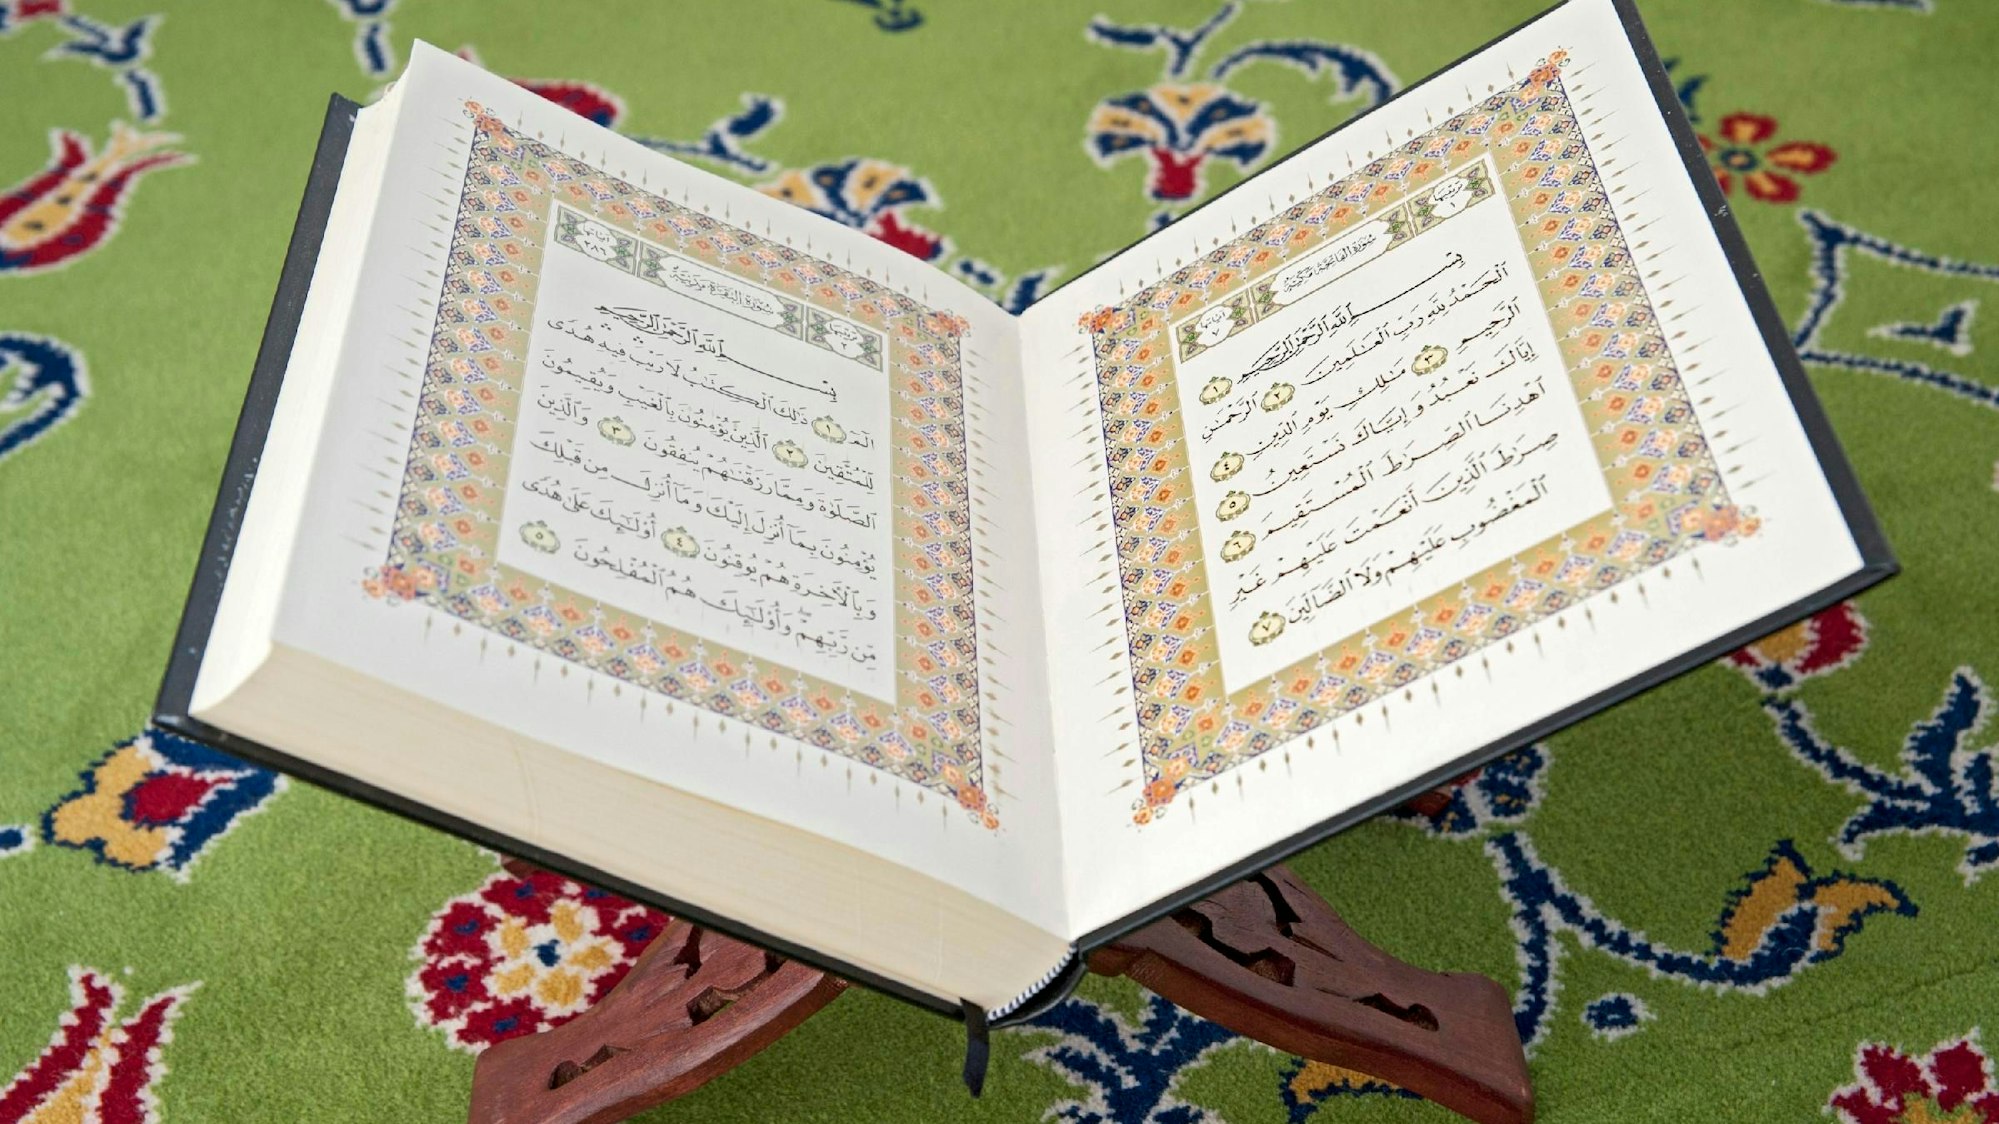 ترتيبها ١
سُورَةُ الْفَاتِحَةِ مَكِّيَّةٌ
آياتها ٧
بِسْمِ اللَّهِ الرَّحْمَٰنِ الرَّحِيمِ ١
الْحَمْدُ لِلَّهِ رَبِّ الْعَالَمِينَ ٢ الرَّحْمَٰنِ
الرَّحِيمِ ٣ مَالِكِ يَوْمِ الدِّينِ ٤
إِيَّاكَ نَعْبُدُ وَإِيَّاكَ نَسْتَعِينُ ٥
اهْدِنَا الصِّرَاطَ الْمُسْتَقِيمَ ٦
صِرَاطَ الَّذِينَ أَنْعَمْتَ عَلَيْهِمْ غَيْرِ
الْمَغْضُوبِ عَلَيْهِمْ وَلَا الضَّالِّينَ ٧
ترتيبها ٢
سُورَةُ الْبَقَرَةِ مَدَنِيَّةٌ
آياتها ٢٨٦
بِسْمِ اللَّهِ الرَّحْمَٰنِ الرَّحِيمِ
الٓمٓ ١ ذَٰلِكَ الْكِتَابُ لَا رَيْبَ ۛ فِيهِ ۛ هُدًى
لِّلْمُتَّقِينَ ٢ الَّذِينَ يُؤْمِنُونَ بِالْغَيْبِ وَيُقِيمُونَ
الصَّلَوٰةَ وَمِمَّا رَزَقْنَاهُمْ يُنفِقُونَ ٣ وَالَّذِينَ
يُؤْمِنُونَ بِمَا أُنزِلَ إِلَيْكَ وَمَا أُنزِلَ مِن قَبْلِكَ
وَبِالْآخِرَةِ هُمْ يُوقِنُونَ ٤ أُولَٰئِكَ عَلَىٰ هُدًى
مِّن رَّبِّهِمْ ۖ وَأُولَٰئِكَ هُمُ الْمُفْلِحُونَ ٥